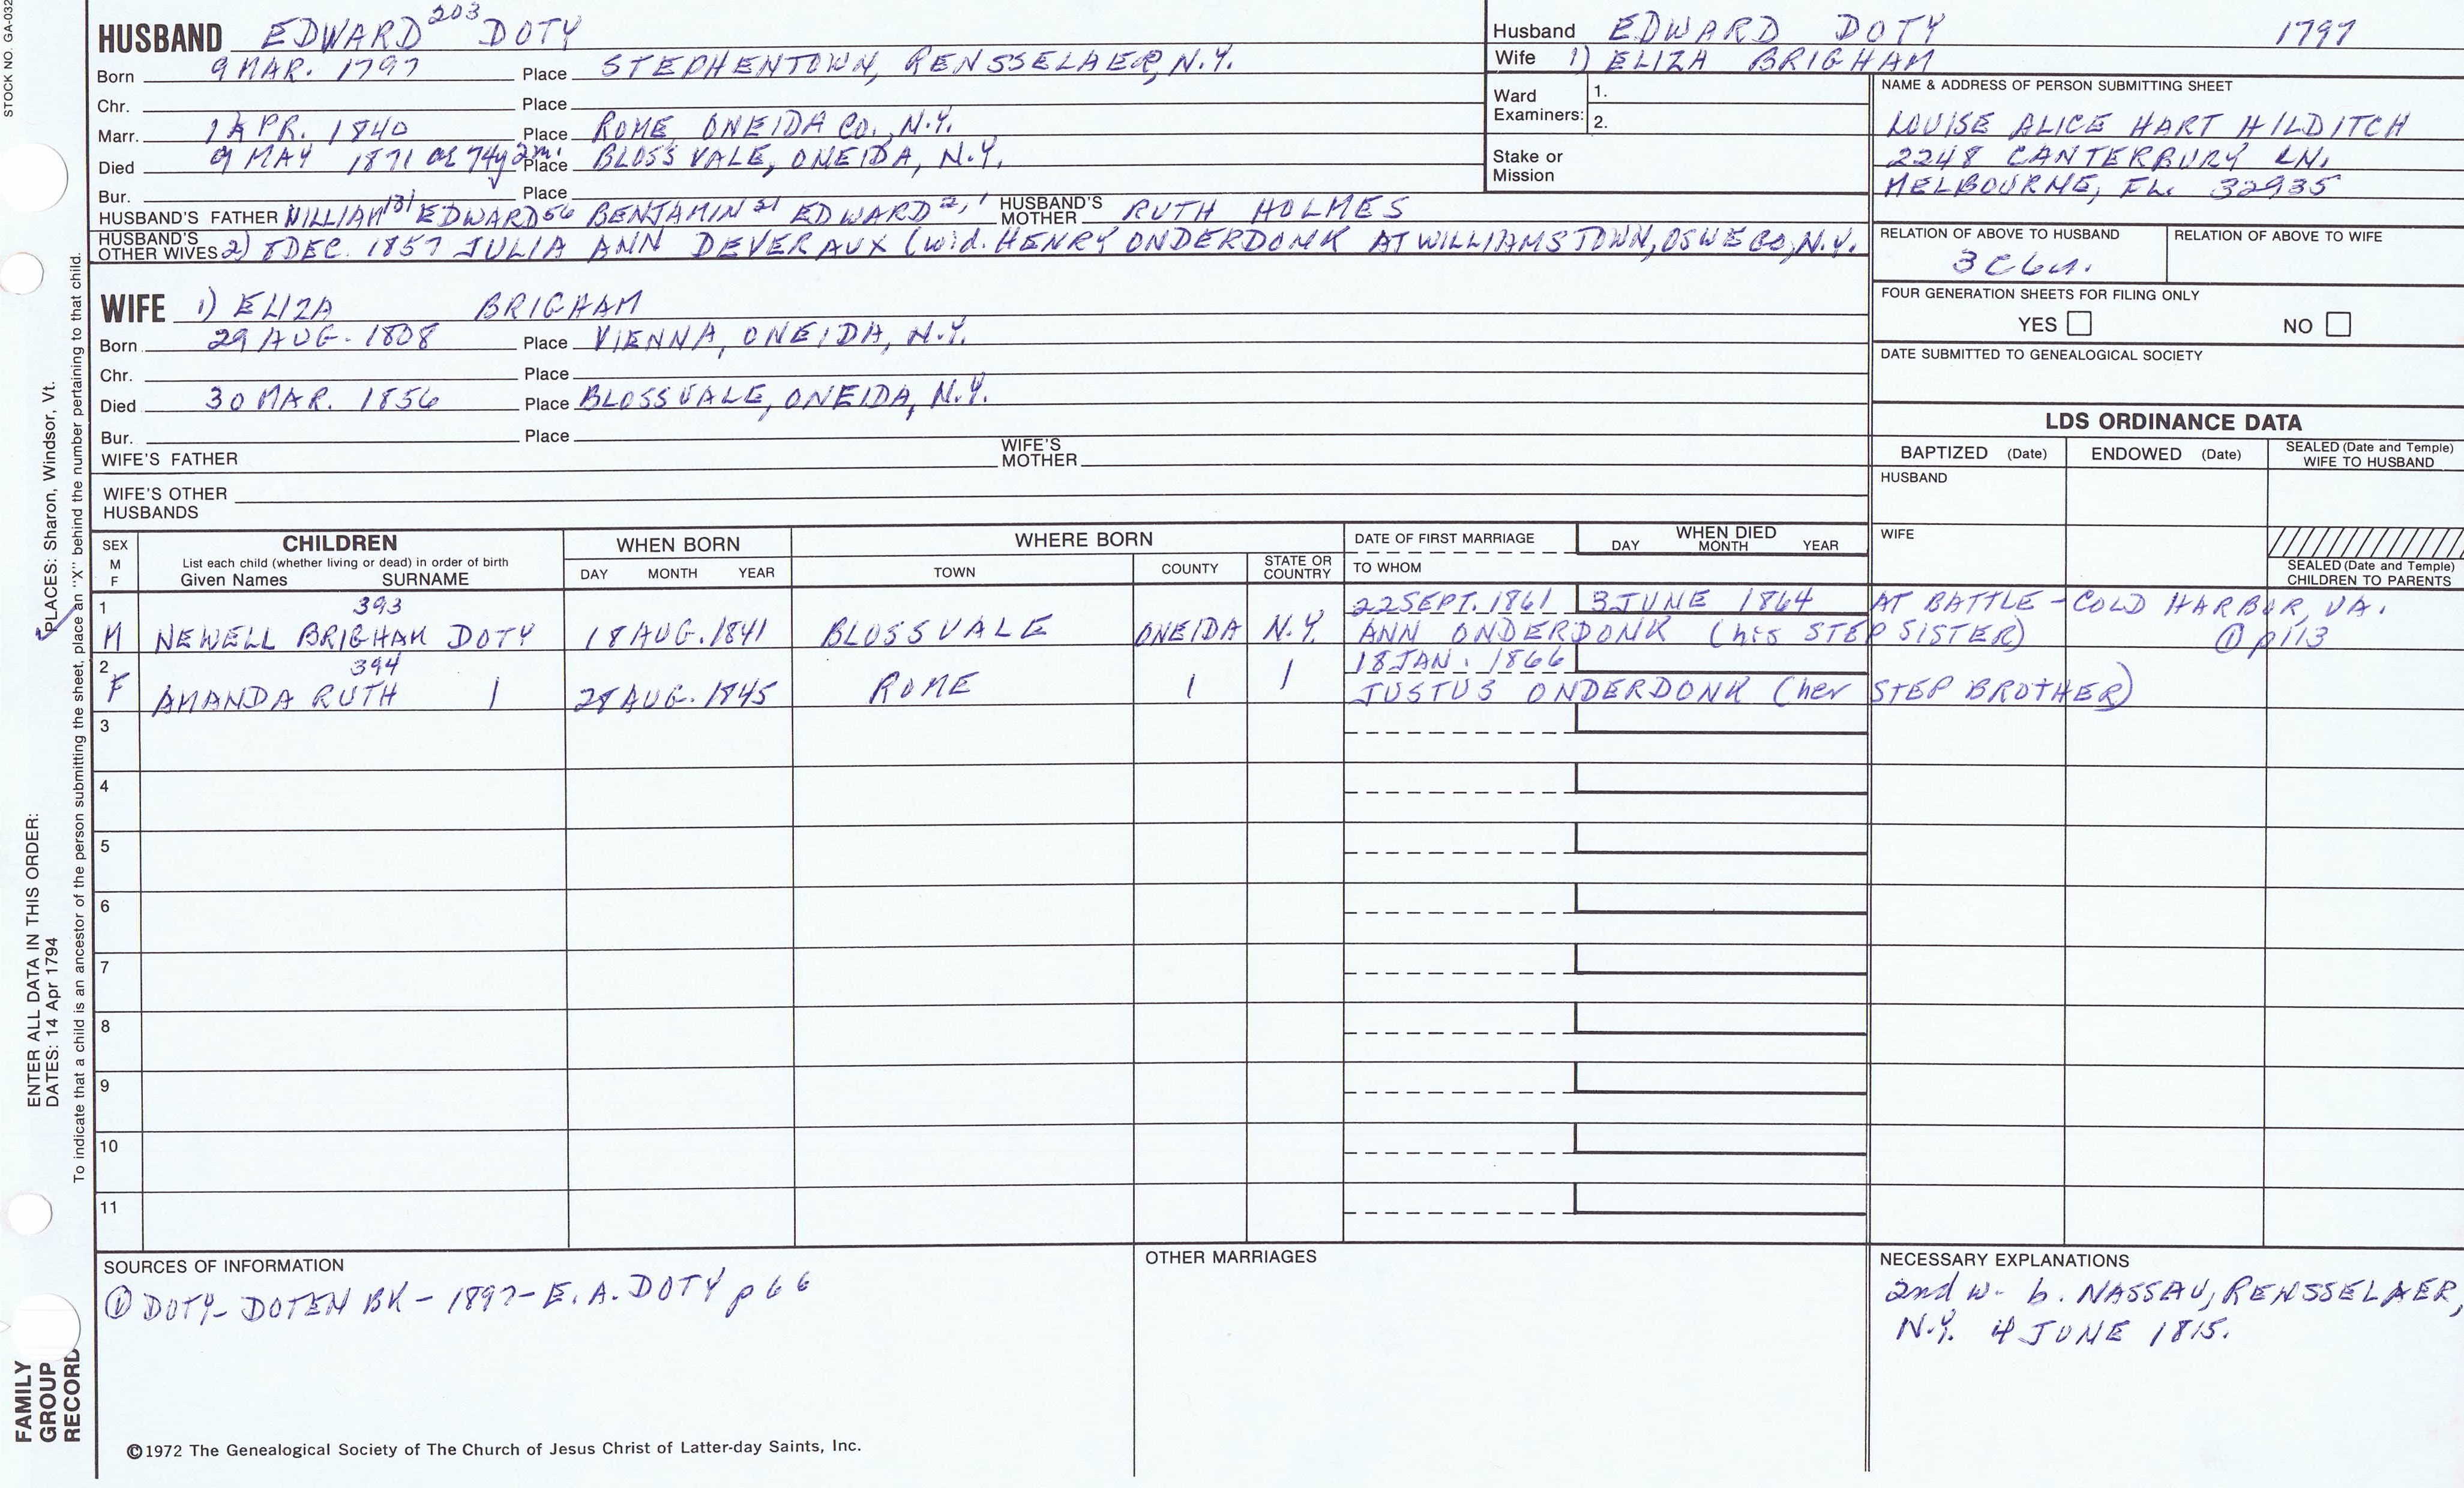 STOCK NO. GA-032
HUSBAND EDWARD 203 DOTY
Born 9 MAR. 1797 Place STEPHENTOWN, RENSSELAER, N.Y.
Chr. Place
Marr. 1 APR. 1840 Place ROME, ONEIDA CO., N.Y.
Died 9 MAY 1871 ae 74y 2m. Place BLOSSVALE, ONEIDA, N.Y.
Bur. Place
HUSBAND'S FATHER WILLIAM 131 EDWARD 56 BENJAMIN 21 EDWARD 2, 1 HUSBAND'S MOTHER RUTH HOLMES
HUSBAND'S OTHER WIVES 2) 8 DEC. 1857 JULIA ANN DEVERAUX (wid. HENRY ONDERDONK AT WILLIAMSTOWN, OSWE CO, N.Y.
Husband EDWARD DOTY 1797
Wife 1) ELIZA BRIGHAM
Ward Examiners: 1.
2.
Stake or Mission
NAME & ADDRESS OF PERSON SUBMITTING SHEET
LOUISE ALICE HART HILDITCH
2248 CANTERBURY LN.
MELBOURNE, FL. 32935
RELATION OF ABOVE TO HUSBAND RELATION OF ABOVE TO WIFE
3 C 6 r.
FOUR GENERATION SHEETS FOR FILING ONLY
YES NO
DATE SUBMITTED TO GENEALOGICAL SOCIETY
WIFE 1) ELIZA BRIGHAM
Born 29 AUG. 1808 Place VIENNA, ONEIDA, N.Y.
Chr. Place
Died 30 MAR. 1856 Place BLOSSVALE, ONEIDA, N.Y.
Bur. Place
WIFE'S FATHER WIFE'S MOTHER
WIFE'S OTHER HUSBANDS
LDS ORDINANCE DATA
BAPTIZED (Date) ENDOWED (Date) SEALED (Date and Temple) WIFE TO HUSBAND
HUSBAND
WIFE
SEALED (Date and Temple) CHILDREN TO PARENTS
SEX M F CHILDREN WHEN BORN WHERE BORN DATE OF FIRST MARRIAGE WHEN DIED
List each child (whether living or dead) in order of birth
Given Names SURNAME DAY MONTH YEAR TOWN COUNTY STATE OR COUNTRY TO WHOM DAY MONTH YEAR
1 393 22 SEPT. 1861 3 JUNE 1864 AT BATTLE - COLD HARBOR, VA.
M NEWELL BRIGHAM DOTY 18 AUG. 1841 BLOSSVALE ONEIDA N.Y. ANN ONDERDONK (his STEP SISTER) ① p113
2 394 18 JAN. 1866
F AMANDA RUTH 28 AUG. 1845 ROME JUSTUS ONDERDONK (her STEP BROTHER)
3
4
5
6
7
8
9
10
11
SOURCES OF INFORMATION
① DOTY-DOTEN BK - 1897 - E. A. DOTY p 66
OTHER MARRIAGES
NECESSARY EXPLANATIONS
2nd w. b. NASSAU, RENSSELAER,
N.Y. 4 JUNE 1815.
©1972 The Genealogical Society of The Church of Jesus Christ of Latter-day Saints, Inc.
ENTER ALL DATA IN THIS ORDER:
DATES: 14 Apr 1794 PLACES: Sharon, Windsor, Vt.
To indicate that a child is an ancestor of the person submitting the sheet, place an "X" behind the number pertaining to that child.
FAMILY
GROUP
RECORD